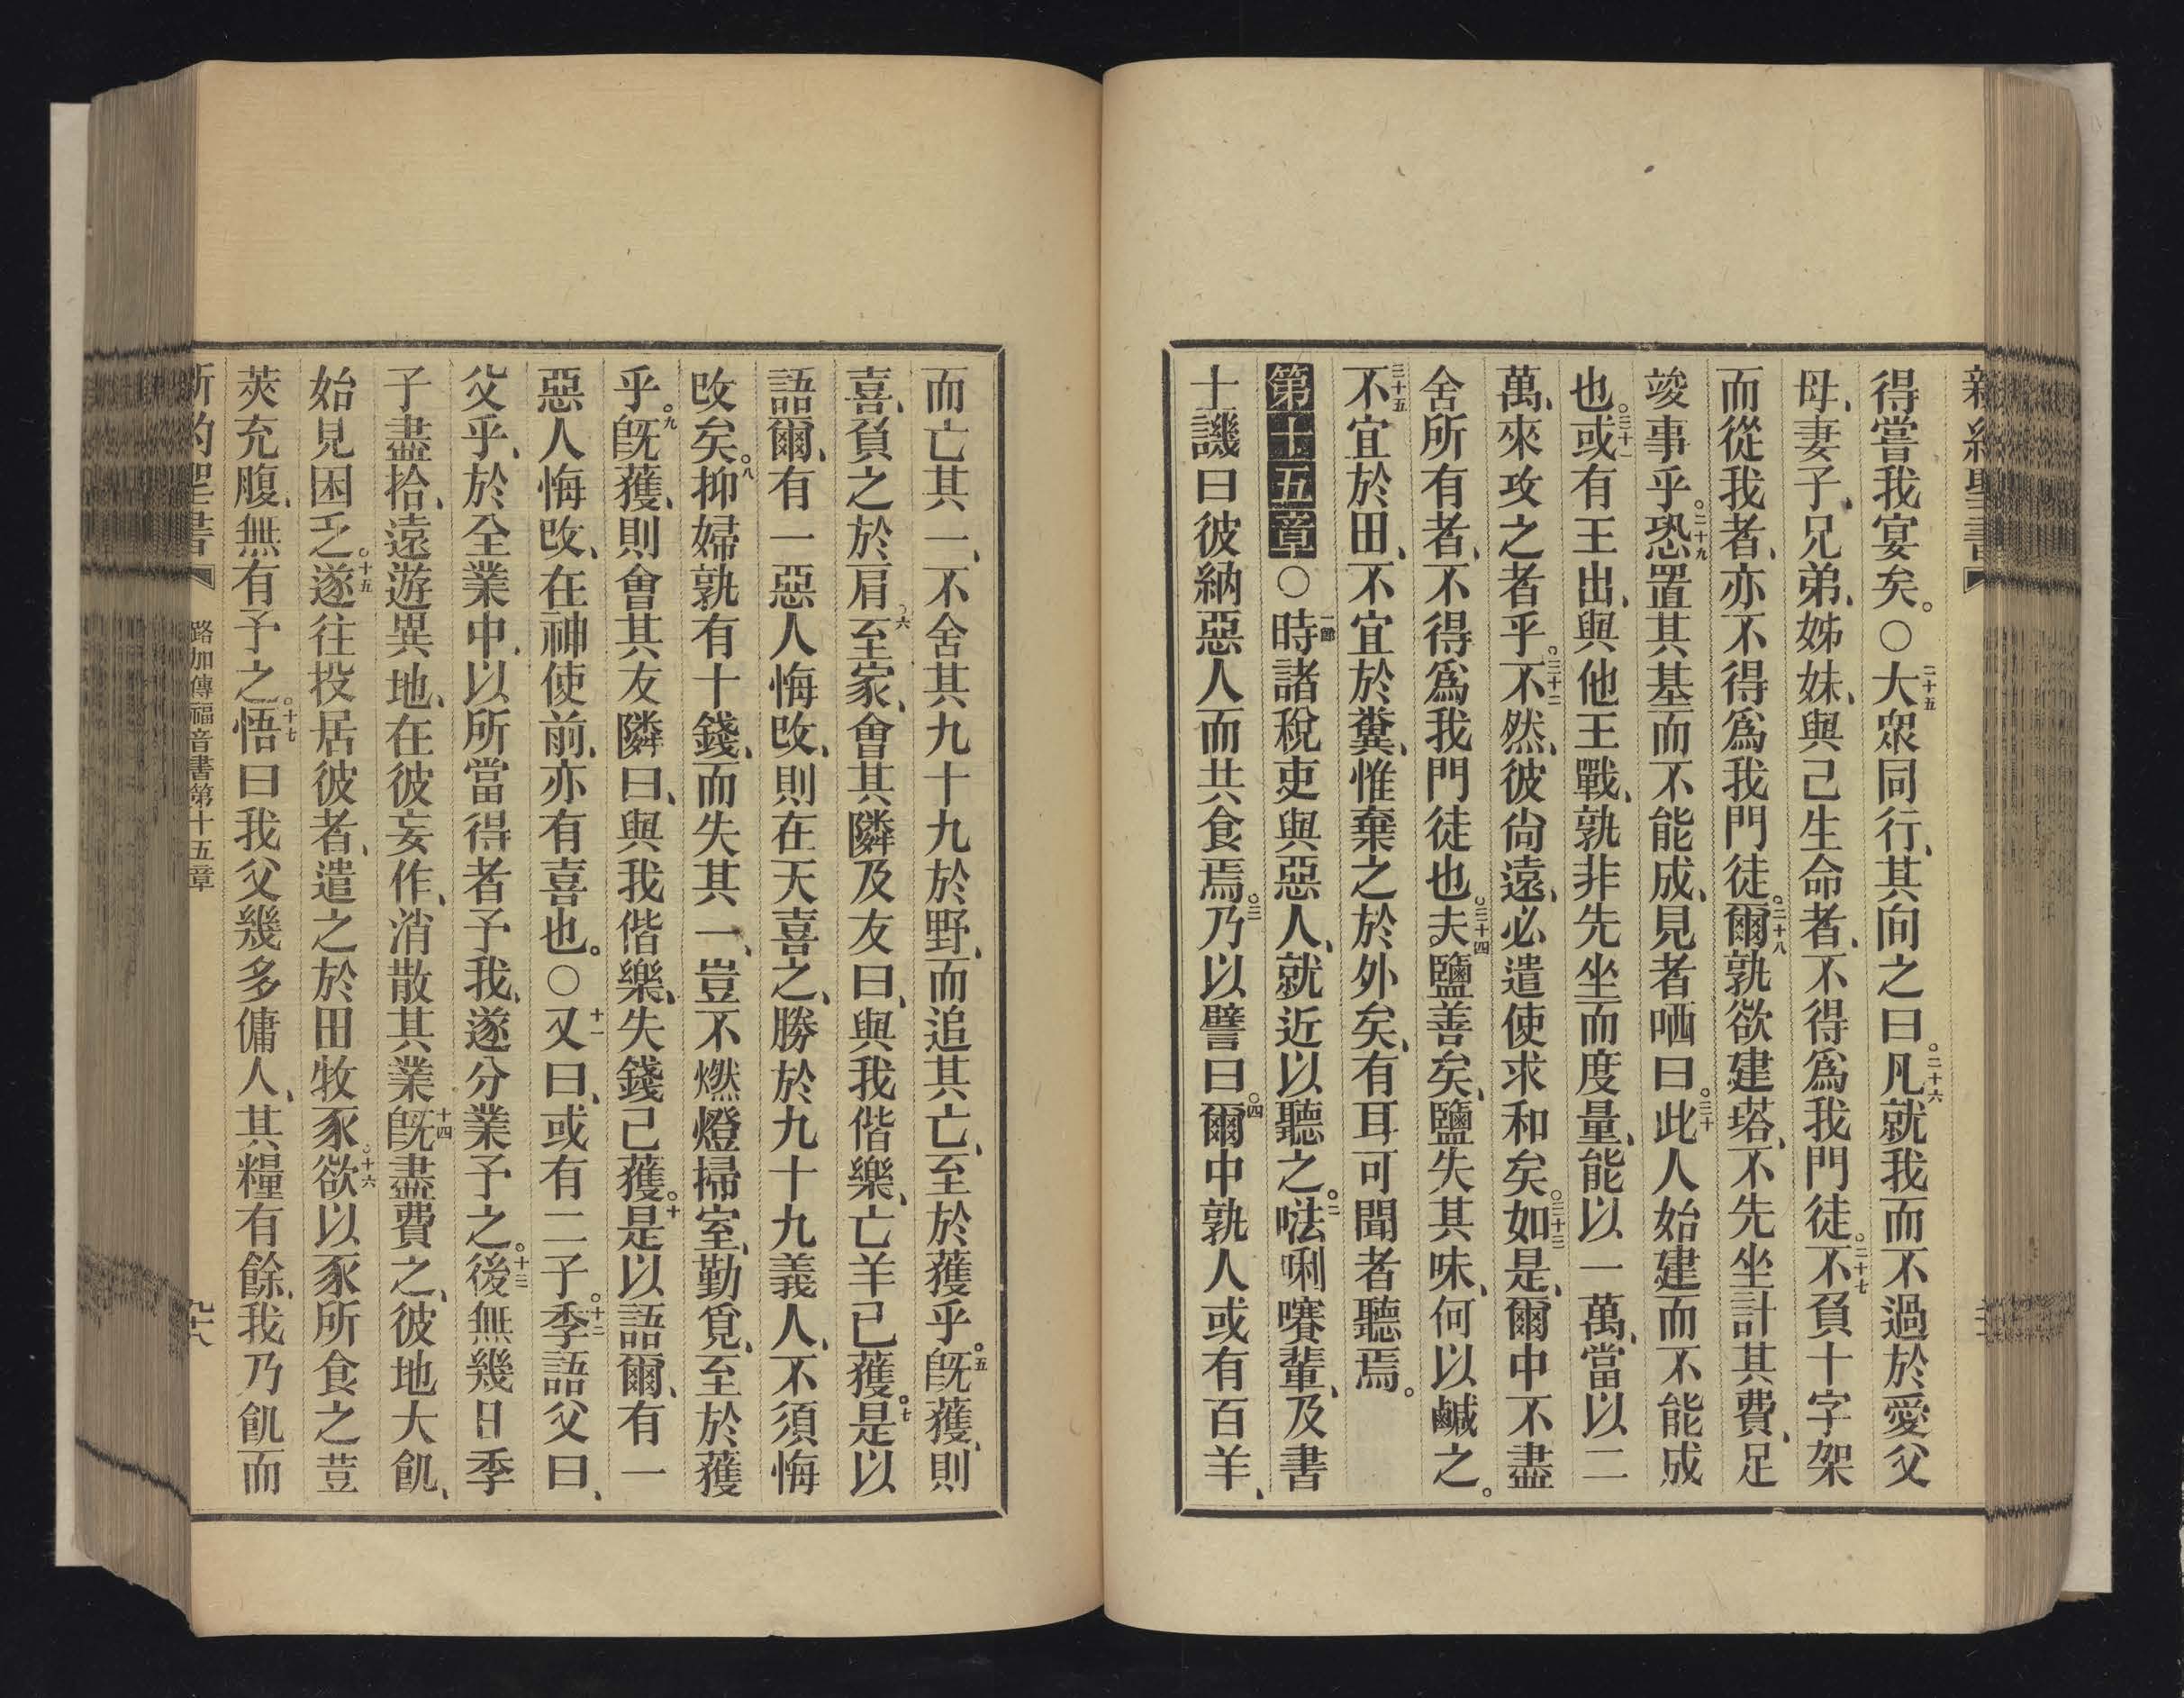 得嘗我宴矣。○二十五大眾同行、其向之曰。二十六凡就我而不過於愛父
母、妻子、兄弟、姊妹、與己生命者、不得爲我門徒。二十七不負十字架
而從我者、亦不得爲我門徒。二十八爾孰欲建塔、不先坐計其費、足
竣事乎。二十九恐置其基而不能成、見者哂曰。三十此人始建而不能成
也。三十一或有王出、與他王戰、孰非先坐而度量、能以一萬、當以二
萬、來攻之者乎。三十二不然、彼尙遠、必遣使求和矣。三十三如是、爾中不盡
舍所有者、不得爲我門徒也。三十四夫鹽善矣、鹽失其味、何以鹹之。
三十五不宜於田、不宜於糞、惟棄之於外矣、有耳可聞者聽焉。
第十五章○一節時諸稅吏與惡人、就近以聽之。二𠵽唎㘔輩、及書
士譏曰彼納惡人而共食焉。三乃以譬曰。四爾中孰人或有百羊、
而亡其一、不舍其九十九於野、而追其亡、至於獲乎。五旣獲、則
喜、負之於肩。六至家、會其隣及友曰、與我偕樂、亡羊已獲。七是以
語爾、有一惡人悔改、則在天喜之、勝於九十九義人、不須悔
改矣。八抑婦孰有十錢、而失其一、豈不燃燈掃室、勤覓、至於獲
乎。九旣獲、則會其友隣曰、與我偕樂、失錢已獲。十是以語爾、有一
惡人悔改、在神使前、亦有喜也。○十一又曰、或有二子。十二季語父曰、
父乎、於全業中、以所當得者予我、遂分業予之。十三後無幾日季
子盡拾、遠遊異地、在彼妄作、消散其業十四旣盡費之、彼地大飢、
始見困乏。十五遂往投居彼者、遣之於田牧豕。十六欲以豕所食之荳
莢充腹、無有予之。十七悟曰我父幾多傭人、其糧有餘、我乃飢而
新約聖書 路加傳福音書第十五章 九十八